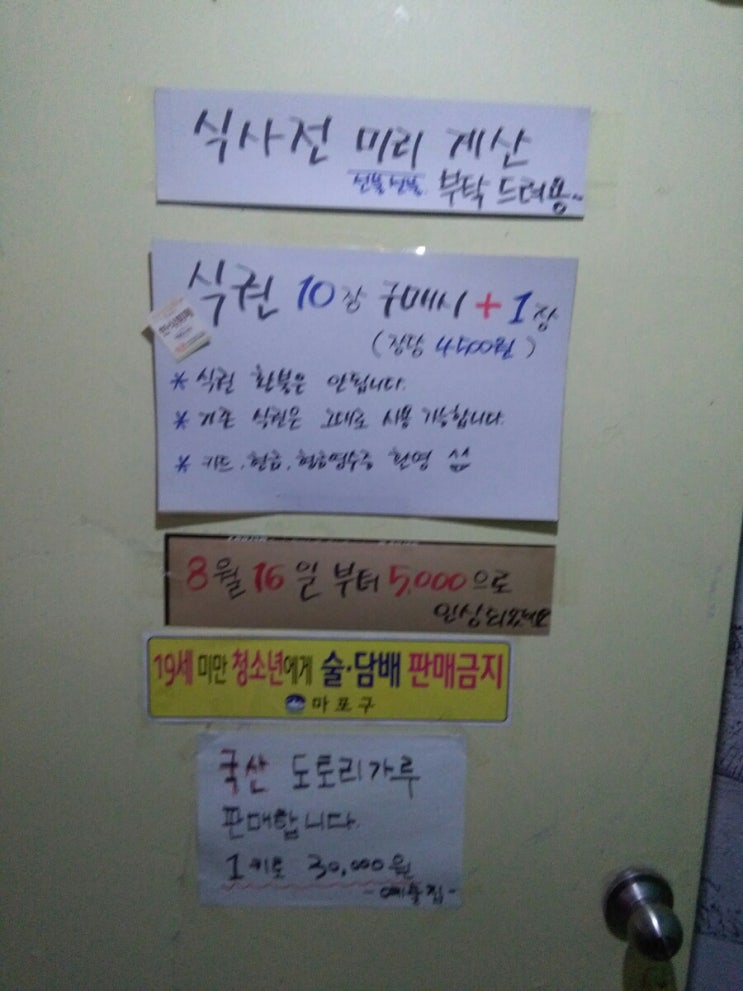 식사전 미리 계산
선불선불 부탁 드려용~
식권 10장 구매시 + 1장
(장당 4500원)
* 식권 환불은 안됩니다.
* 기존 식권은 그대로 사용 가능합니다.
* 카드, 현금, 현금영수증 환영
8월 16일 부터 5,000으로
인상되었어요
19세 미만 청소년에게 술·담배 판매금지
마포구
국산 도토리가루
판매합니다.
1키로 30,000원